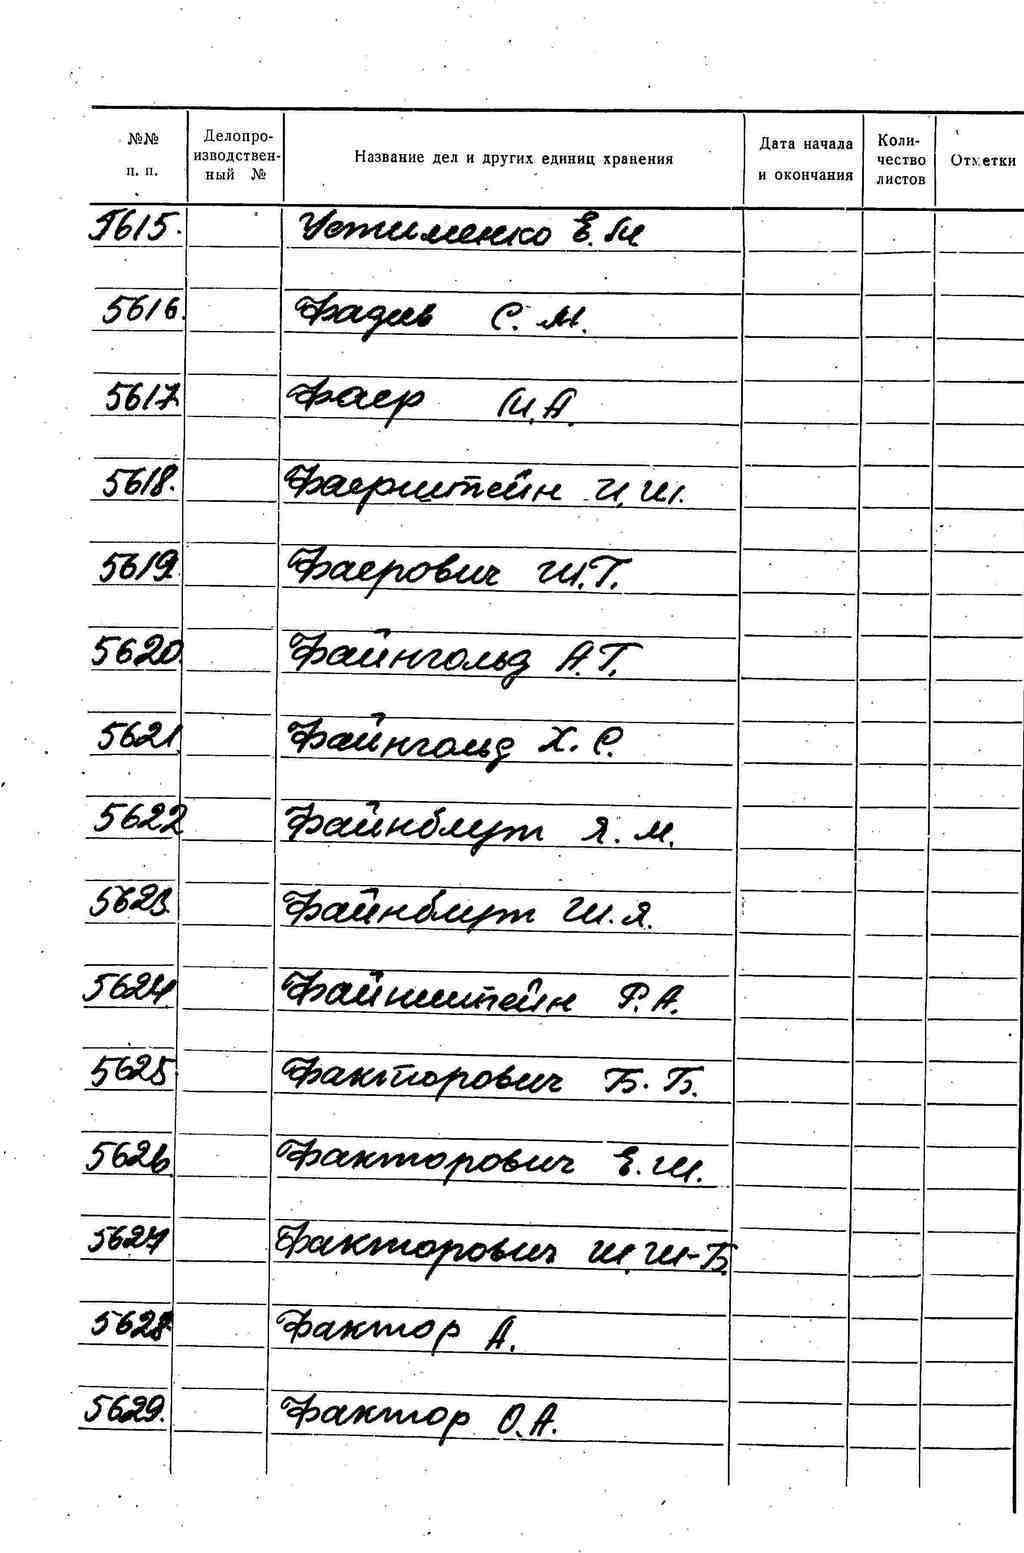 №№ п. п. Делопроизводственный № Название дел и других единиц хранения Дата начала и окончания Количество листов Отметки
5615. Устименко Е. М
5616. Фадев С. М.
5617 Фаер М. А.
5618. Фаерштейн И. Ш.
5619. Фаерович Ш. Г.
5620. Файнгольд А. Г.
5621 Файнгольд Х. С.
5622 Файнблут Я. М.
5623. Файнблут Ш. Я.
5624 Файнштейн Р. А.
5625 Факторович Б. Б.
5626 Факторович Е. Ш.
5627 Факторович Ш. Ш-Б.
5628 Фактор А.
5629. Фактор О. А.